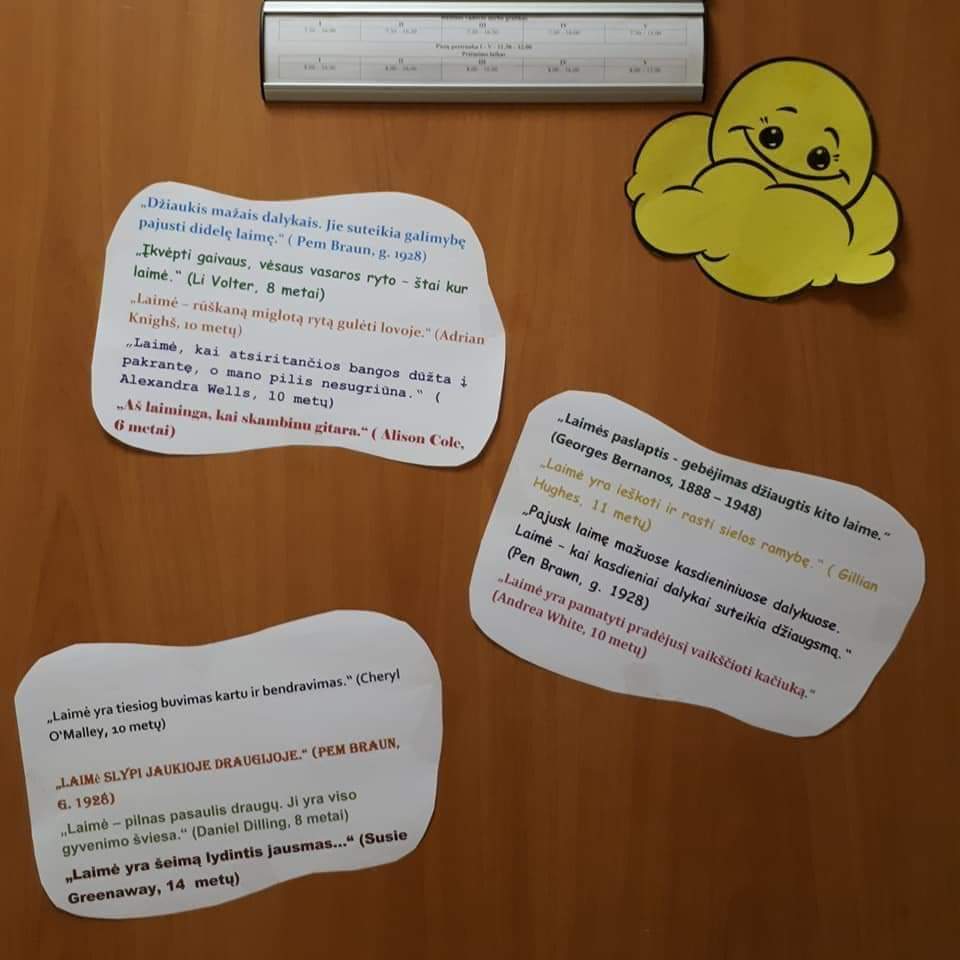 I II III IV V
7.30 – 16.30 7.30 – 16.30
Pietų pertrauka I - V – 11.30 – 12.00
I II III IV V
8.00 – 16.00 8.00 – 16.00 8.00 – 16.00 8.00 – 16.00
„Džiaukis mažais dalykais. Jie suteikia galimybę
pajusti didelę laimę.“ ( Pem Braun, g. 1928)
„Įkvėpti gaivaus, vėsaus vasaros ryto – štai kur
laimė.“ (Li Volter, 8 metai)
„Laimė – rūškaną miglotą rytą gulėti lovoje.“ (Adrian
Knighš, 10 metų)
„Laimė, kai atsiritančios bangos dūžta į
pakrantę, o mano pilis nesugriūna.“ (
Alexandra Wells, 10 metų)
„Aš laiminga, kai skambinu gitara.“ ( Alison Cole,
6 metai)
„Laimės paslaptis - gebėjimas džiaugtis kito laime.“
(Georges Bernanos, 1888 – 1948)
„Laimė yra ieškoti ir rasti sielos ramybę.“ ( Gillian
Hughes, 11 metų)
„Pajusk laimę mažuose kasdieniniuose dalykuose.
Laimė – kai kasdieniai dalykai suteikia džiaugsmą.“
(Pen Brawn, g. 1928)
„Laimė yra pamatyti pradėjusį vaikščioti kačiuką.“
(Andrea White, 10 metų)
„Laimė yra tiesiog buvimas kartu ir bendravimas.“ (Cheryl
O‘Malley, 10 metų)
„LAIMė SLYPI JAUKIOJE DRAUGIJOJE.“ (PEM BRAUN,
G. 1928)
„Laimė – pilnas pasaulis draugų. Ji yra viso
gyvenimo šviesa.“ (Daniel Dilling, 8 metai)
„Laimė yra šeimą lydintis jausmas...“ (Susie
Greenaway, 14 metų)